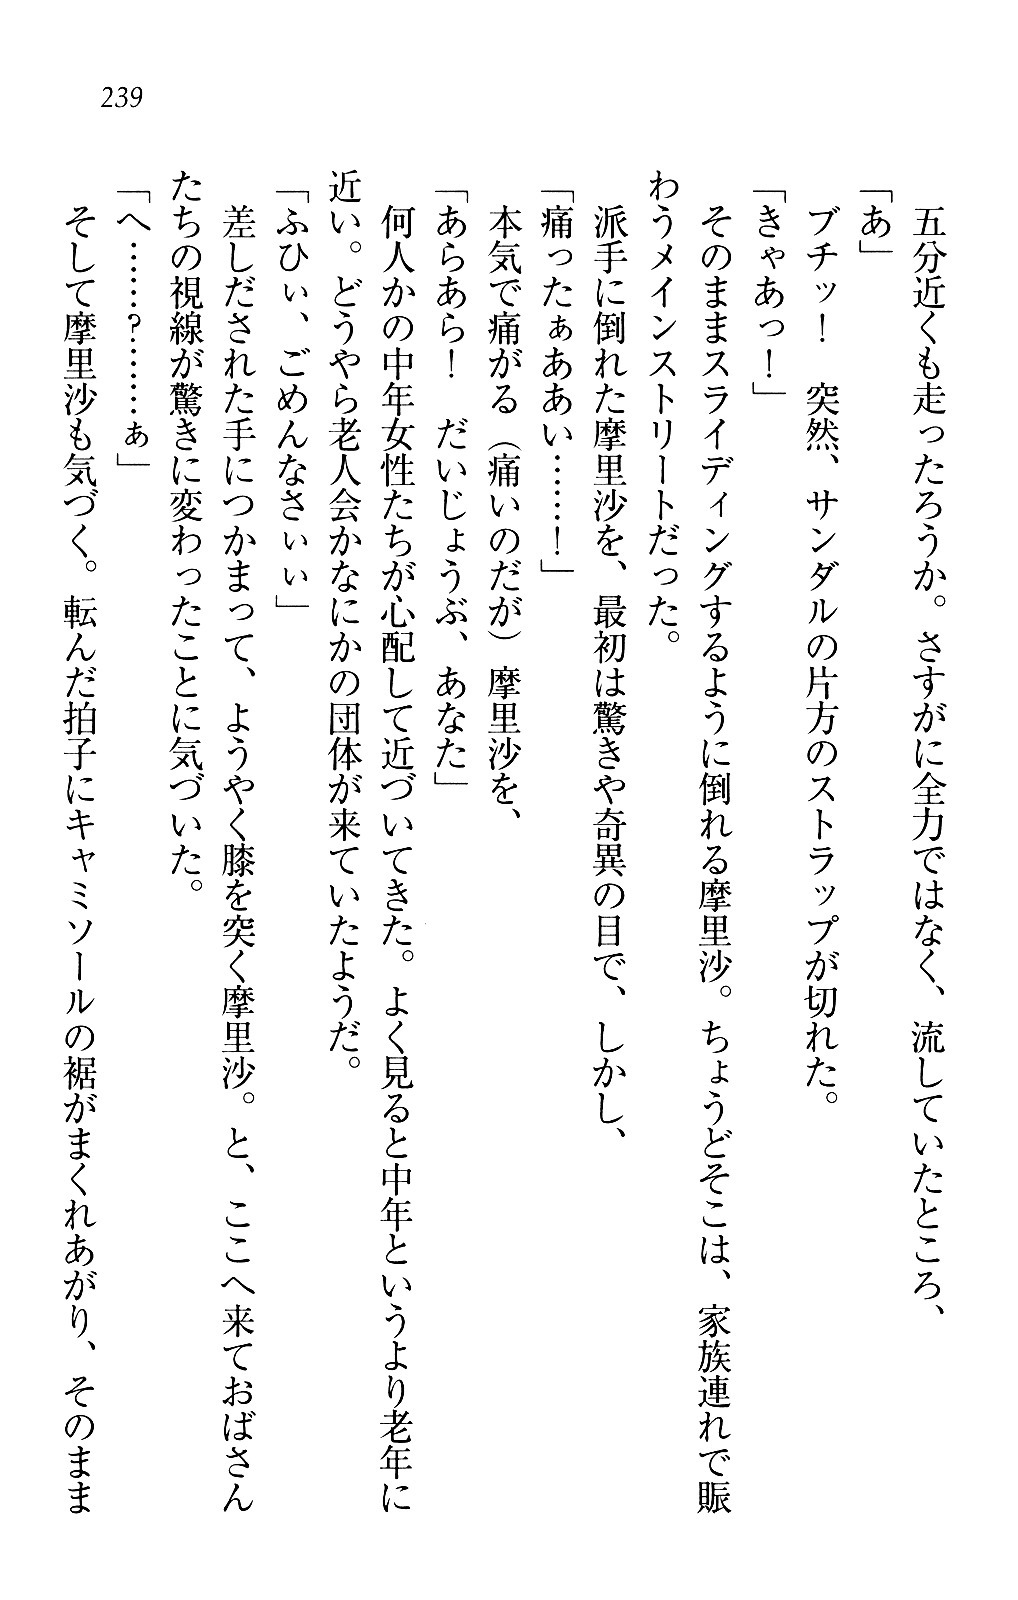 239
五分近くも走ったろうか。さすがに全力ではなく、流していたところ、
「あ」
ブチッ！　突然、サンダルの片方のストラップが切れた。
「きゃあっ！」
そのままスライディングするように倒れる摩里沙。ちょうどそこは、家族連れで賑
わうメインストリートだった。
派手に倒れた摩里沙を、最初は驚きや奇異の目で、しかし、
「痛ったぁああい……！」
本気で痛がる（痛いのだが）摩里沙を、
「あらあら！　だいじょうぶ、あなた」
何人かの中年女性たちが心配して近づいてきた。よく見ると中年というより老年に
近い。どうやら老人会かなにかの団体が来ていたようだ。
「ふひぃ、ごめんなさぃぃ」
差しだされた手につかまって、ようやく膝を突く摩里沙。と、ここへ来ておばさん
たちの視線が驚きに変わったことに気づいた。
「へ………？………ぁ」
そして摩里沙も気づく。転んだ拍子にキャミソールの裾がまくれあがり、そのまま